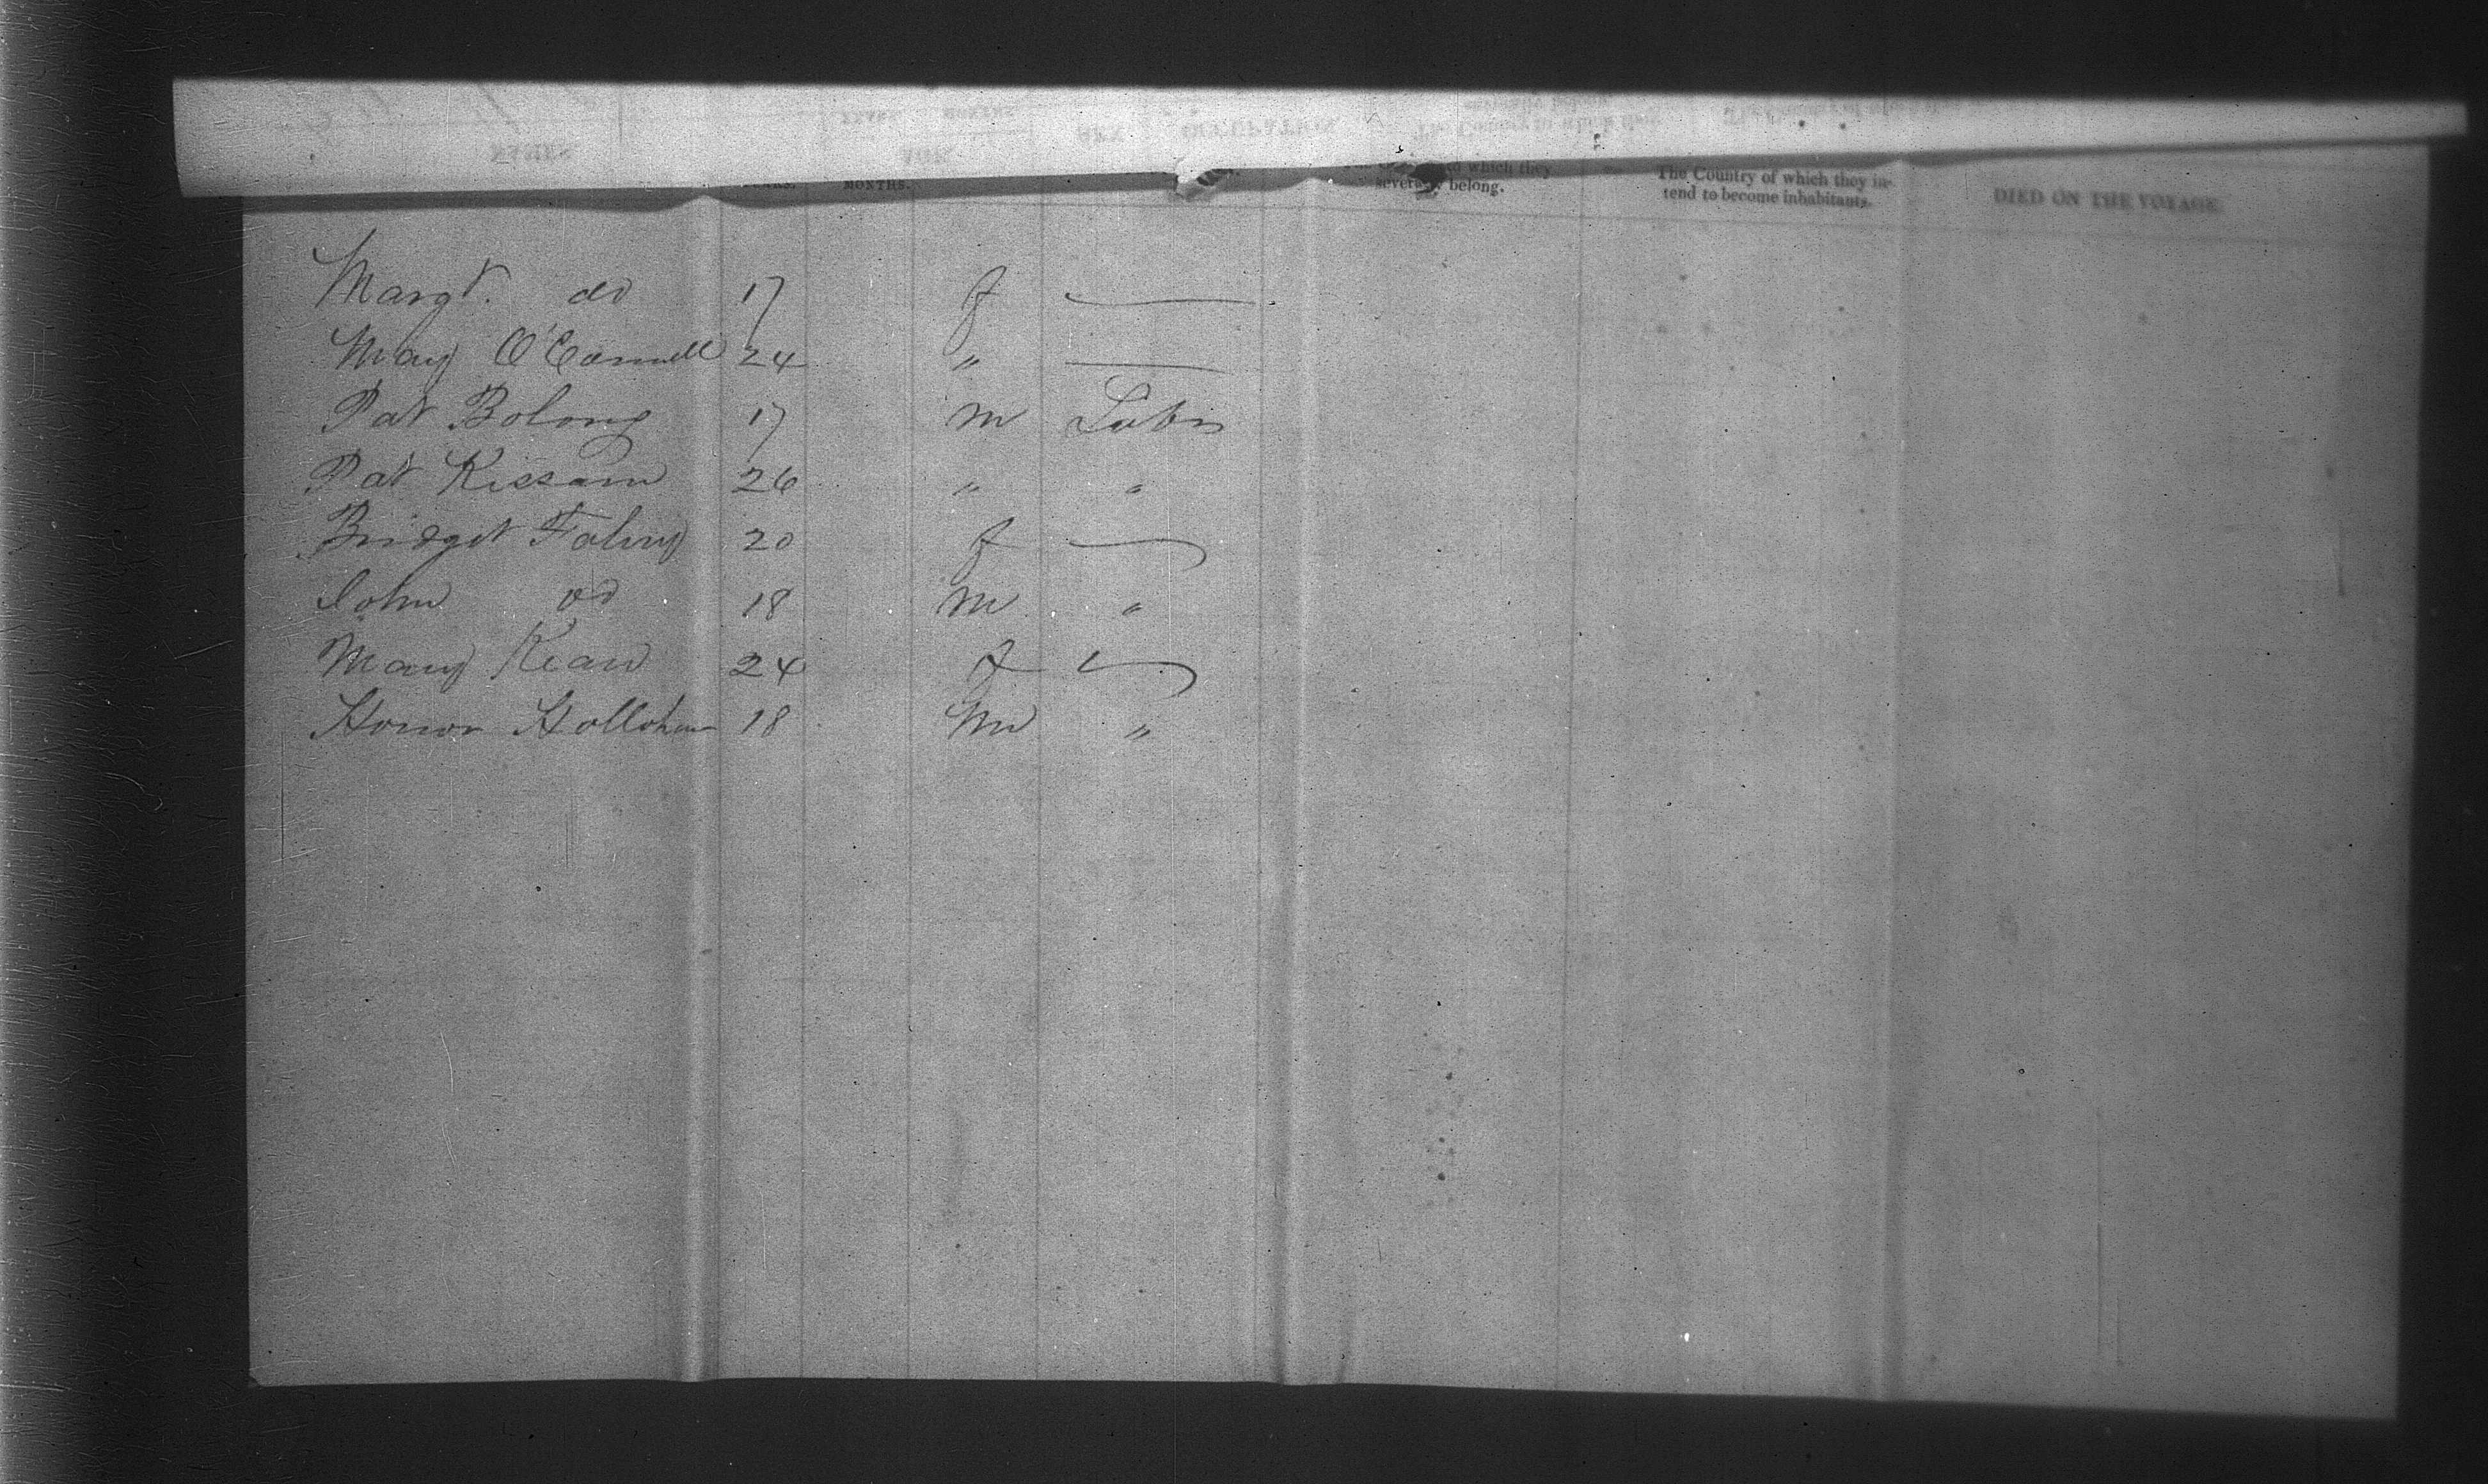 YEARS. MONTHS. which they The Country of which they in-
severally belong. tend to become inhabitants. DIED ON THE VOYAGE
Margt. do 17 f —
Mary O'Connell 24 " —
Pat Bolong 17 m Labr
Pat Kissam 26 " "
Bridget Faling 20 f —
John do 18 m "
Mary Kean 24 f —
Honor Hollohan 18 m "